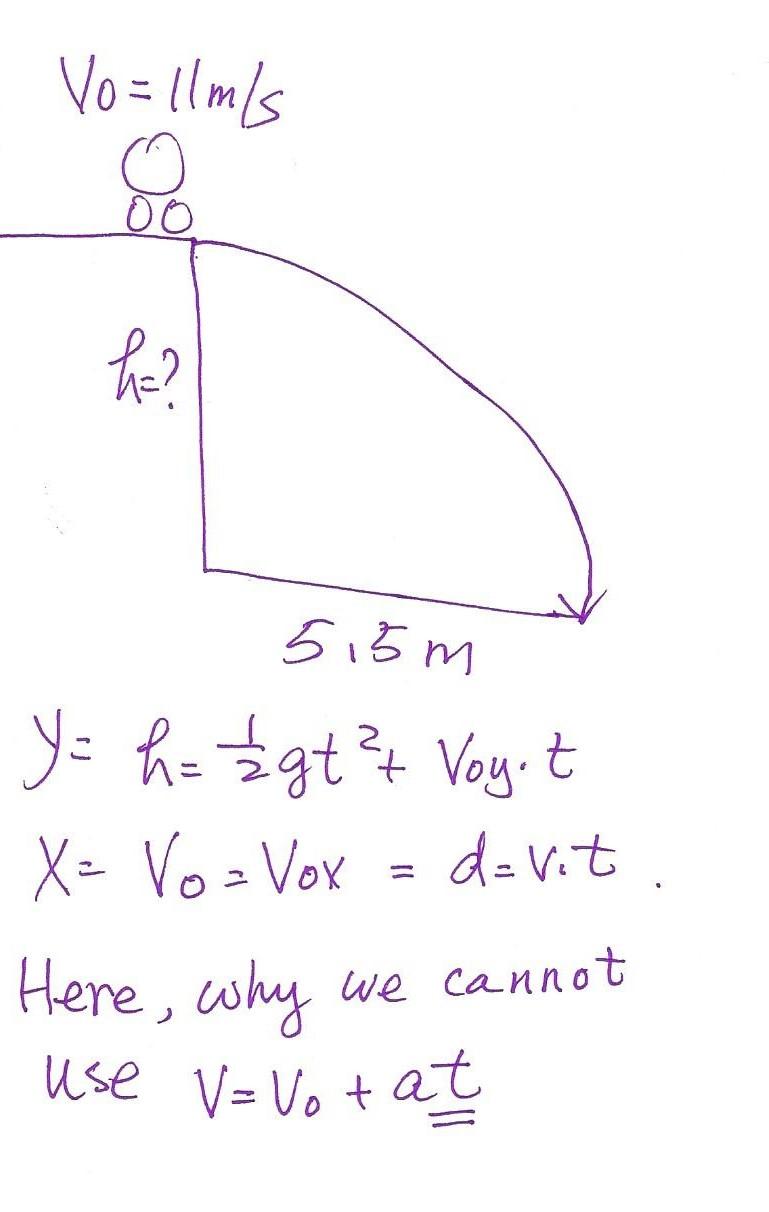 V0 = 11 m/s
h=?
5.5 m
y= h= 1/2 gt² + Voy·t
X= Vo = Vox = d= v·t .
Here, why we cannot
use V= Vo + at